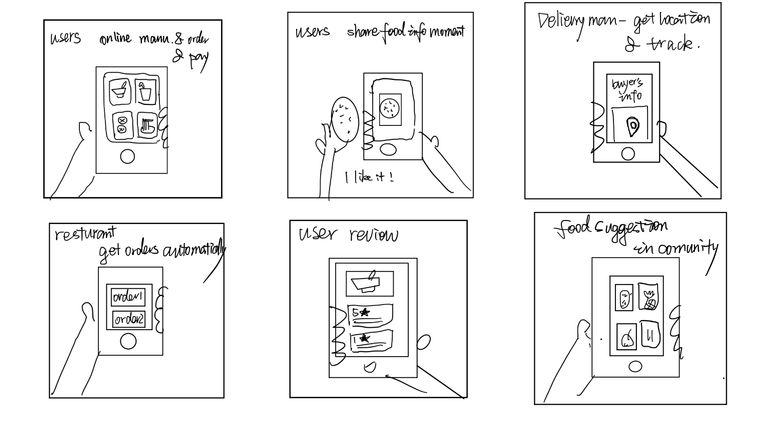 users online manu. & order
& pay
users share food info moment
I like it!
Delieryman - get location
& track.
buyer's
info
resturant
get orders automatically
order1
order2
user review
5★
1★
food suggestion
in comunity